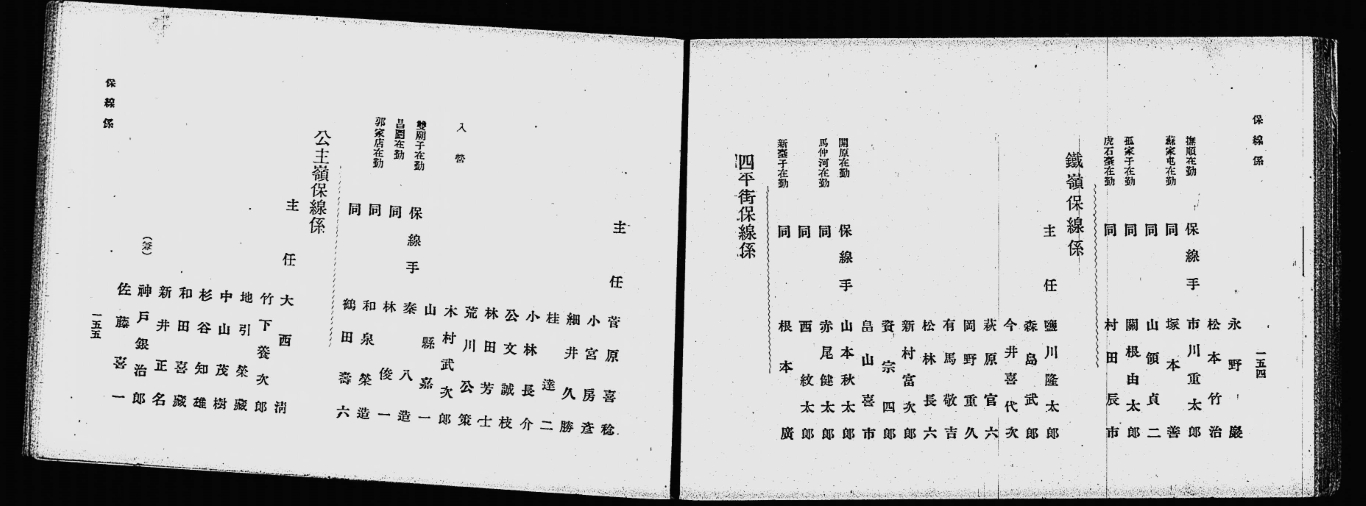 保線係
一五四
永野巖
松本竹治
撫順在勤 保線手 市川重太郎
蘇家屯在勤 同 塚本善
同 山領貞二
孤家子在勤 同 關根由太郎
虎石臺在勤 同 村田辰市
鐵嶺保線係
主任 鹽川隆太郎
森島武郎
今井喜代次
萩原官六
岡野重久
有馬敬吉
松林長六
新村富次郎
賚宗四郎
畠山喜市
開原在勤 保線手 山本秋太郎
馬仲河在勤 同 赤尾健太郎
同 西紋太郎
新臺子在勤 同 根本廣
四平街保線係
主任 菅原喜稔
小宮房彦
細井久勝
桂達二
小林長介
公文誠枝
林田芳士
荒川公策
入營 木村武次郎
山縣嘉一
雙廟子在勤 保線手 秦八造
昌圖在勤 同 林俊一
郭家店在勤 同 和泉榮造
同 鶴田壽六
公主嶺保線係
主任 大西淸
竹下養次郎
地引榮藏
中山茂樹
杉谷知雄
和田喜藏
新井正名
神戸銀治郎
佐藤喜一
保線係
一五五